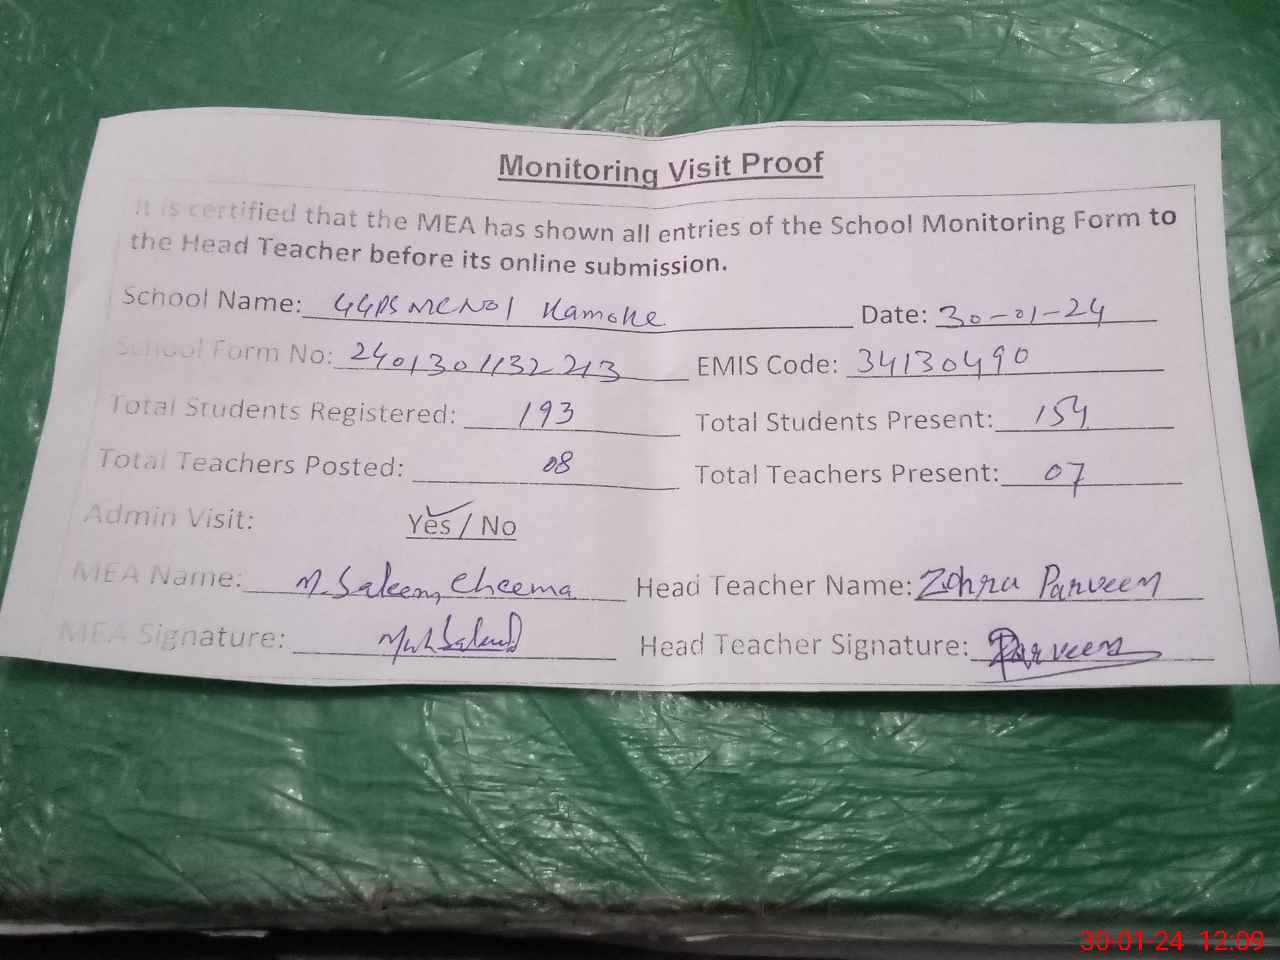 Monitoring Visit Proof
It is certified that the MEA has shown all entries of the School Monitoring Form to
the Head Teacher before its online submission.
School Name: GGPS MC NO1 Kamoke Date: 30-01-24
School Form No: 2401301132213 EMIS Code: 34130490
Total Students Registered: 193 Total Students Present: 154
Total Teachers Posted: 08 Total Teachers Present: 07
Admin Visit: Yes / No
MEA Name: M. Saleem Cheema Head Teacher Name: Zohra Parveen
MEA Signature: Head Teacher Signature: Parveen
30-01-24 12:09